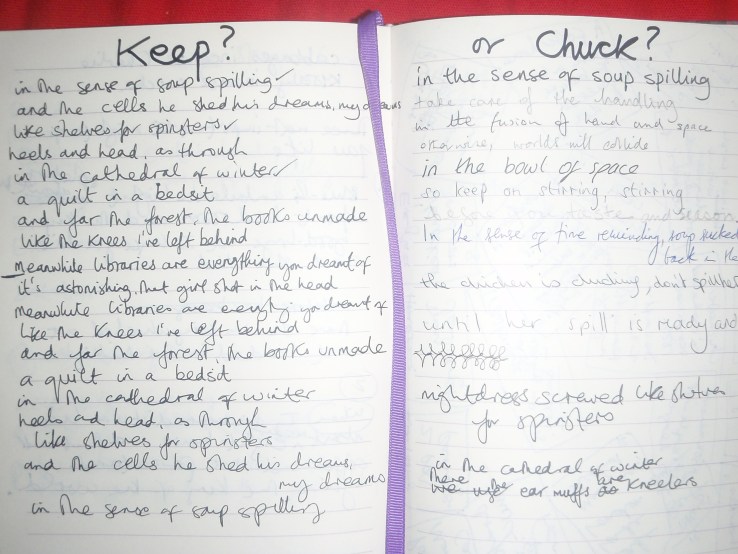 Keep?
in the sense of soup spilling
and the cells he shed his dreams, my dreams
like shelves for spinsters
heels and head, as through
in the cathedral of winter
a quilt in a bedsit
and far the forest, the books unmade
like the knees I've left behind
Meanwhile libraries are everything you dreamt of
it's astonishing, that girl shot in the head
meanwhile libraries are everythg you dreamt of
like the knees I've left behind
and far the forest, the books unmade
a quilt in a bedsit
in the cathedral of winter
heels and head, as through
like shelves for spinsters
and the cells he shed his dreams,
my dreams
in the sense of soup spilling
or Chuck?
in the sense of soup spilling
take care of the handling
in the fusion of hand and space
otherwise, worlds will collide
in the bowl of space
so keep on stirring, stirring
taste and season
In the sense of time rewinding, soup sucked
back in the
the chicken is clucking, don't spill her
until her spill is ready and
nightdress screwed like shelves
for spinsters
in the cathedral of winter
there be
we use ear muffs are kneelers